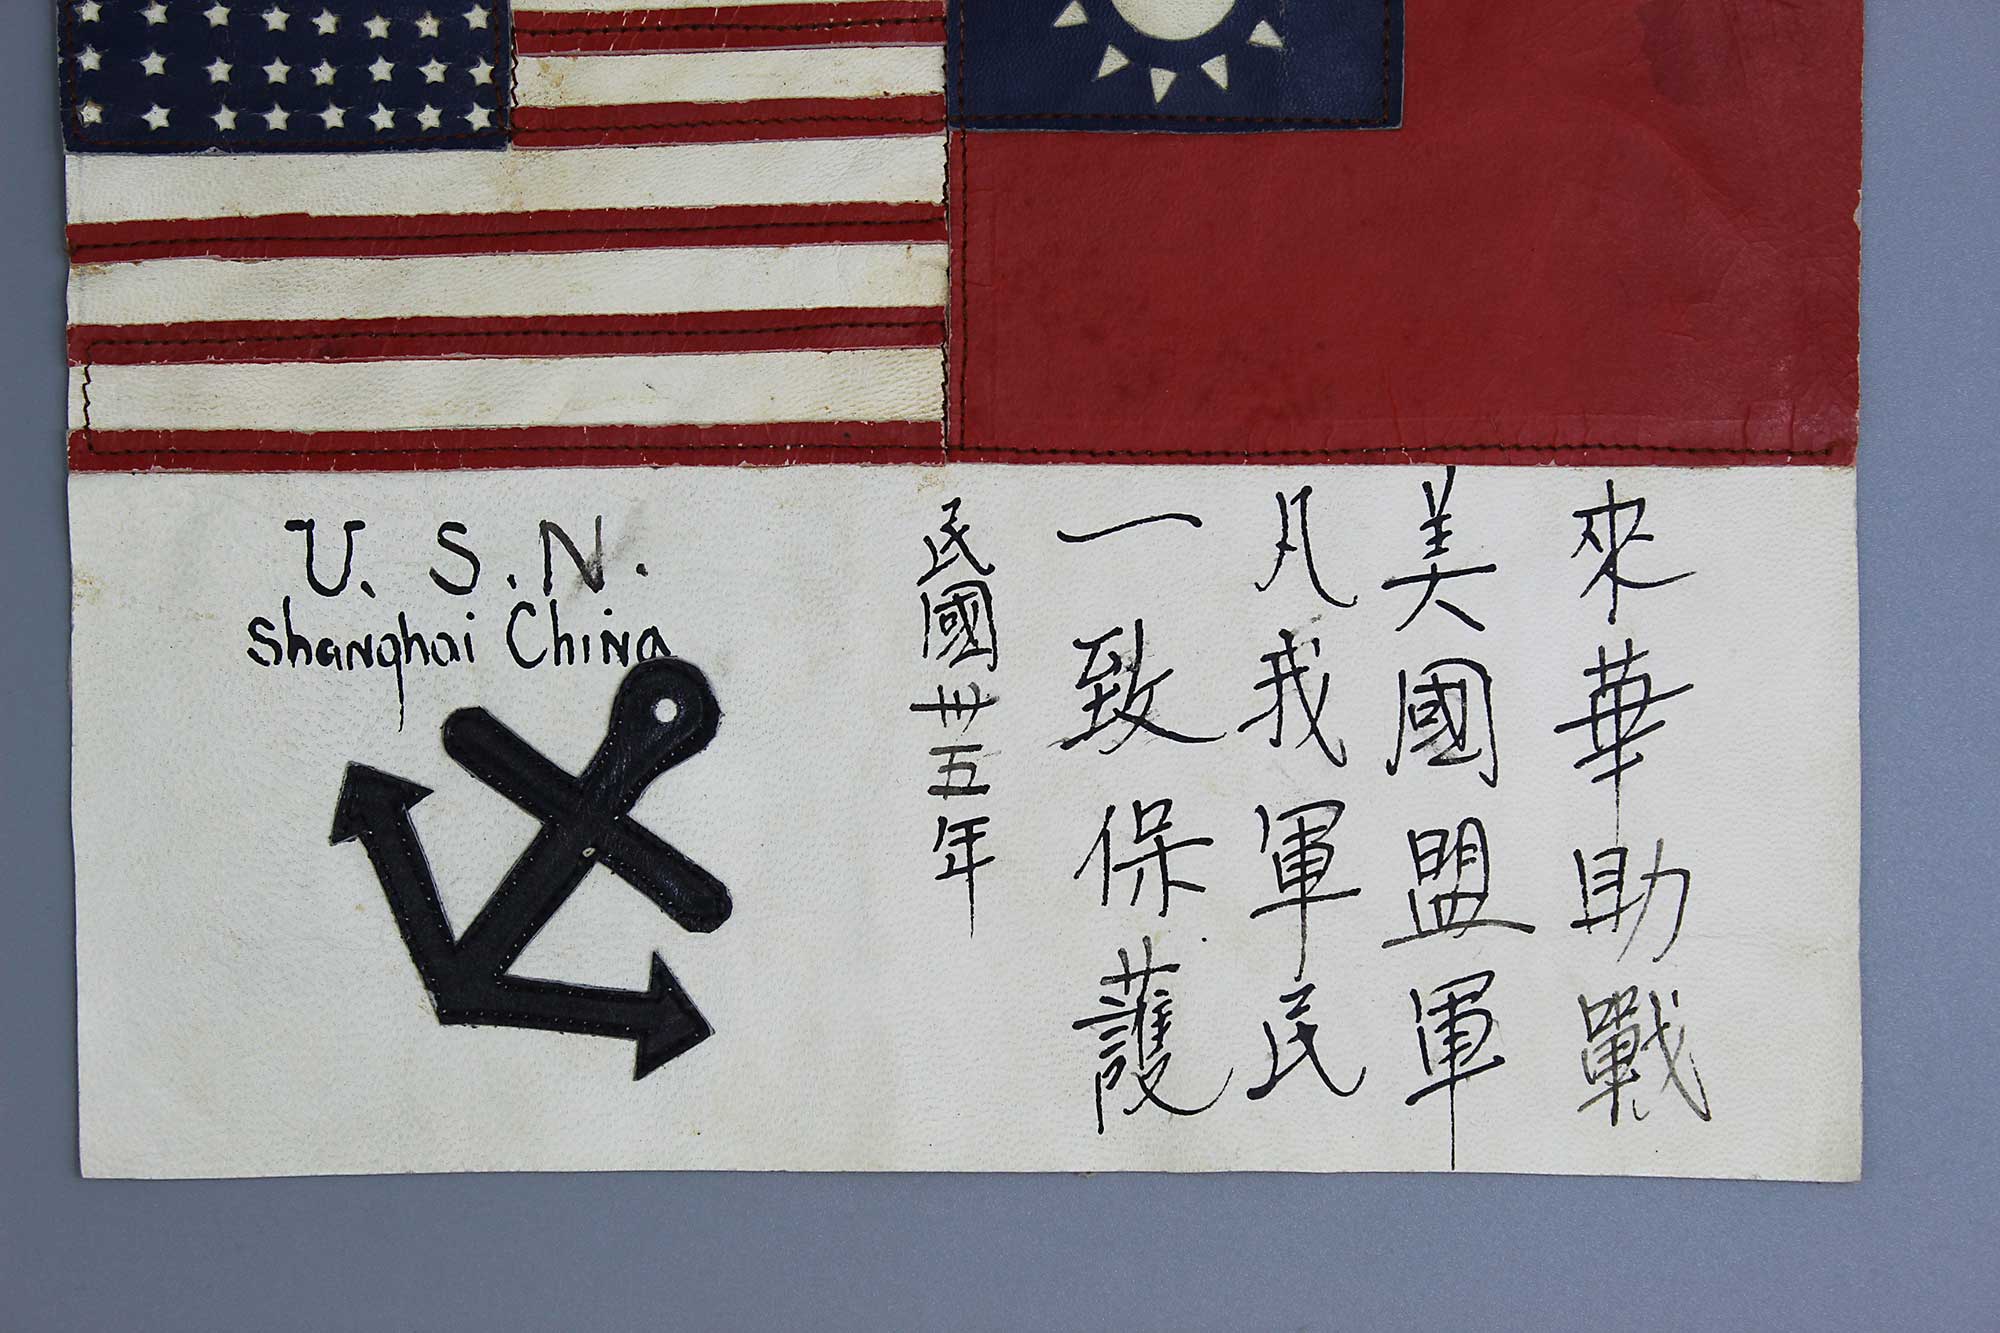 U. S. N.
Shanghai China
來華助戰
美國盟軍
凡我軍民
一致保護
民國卅五年